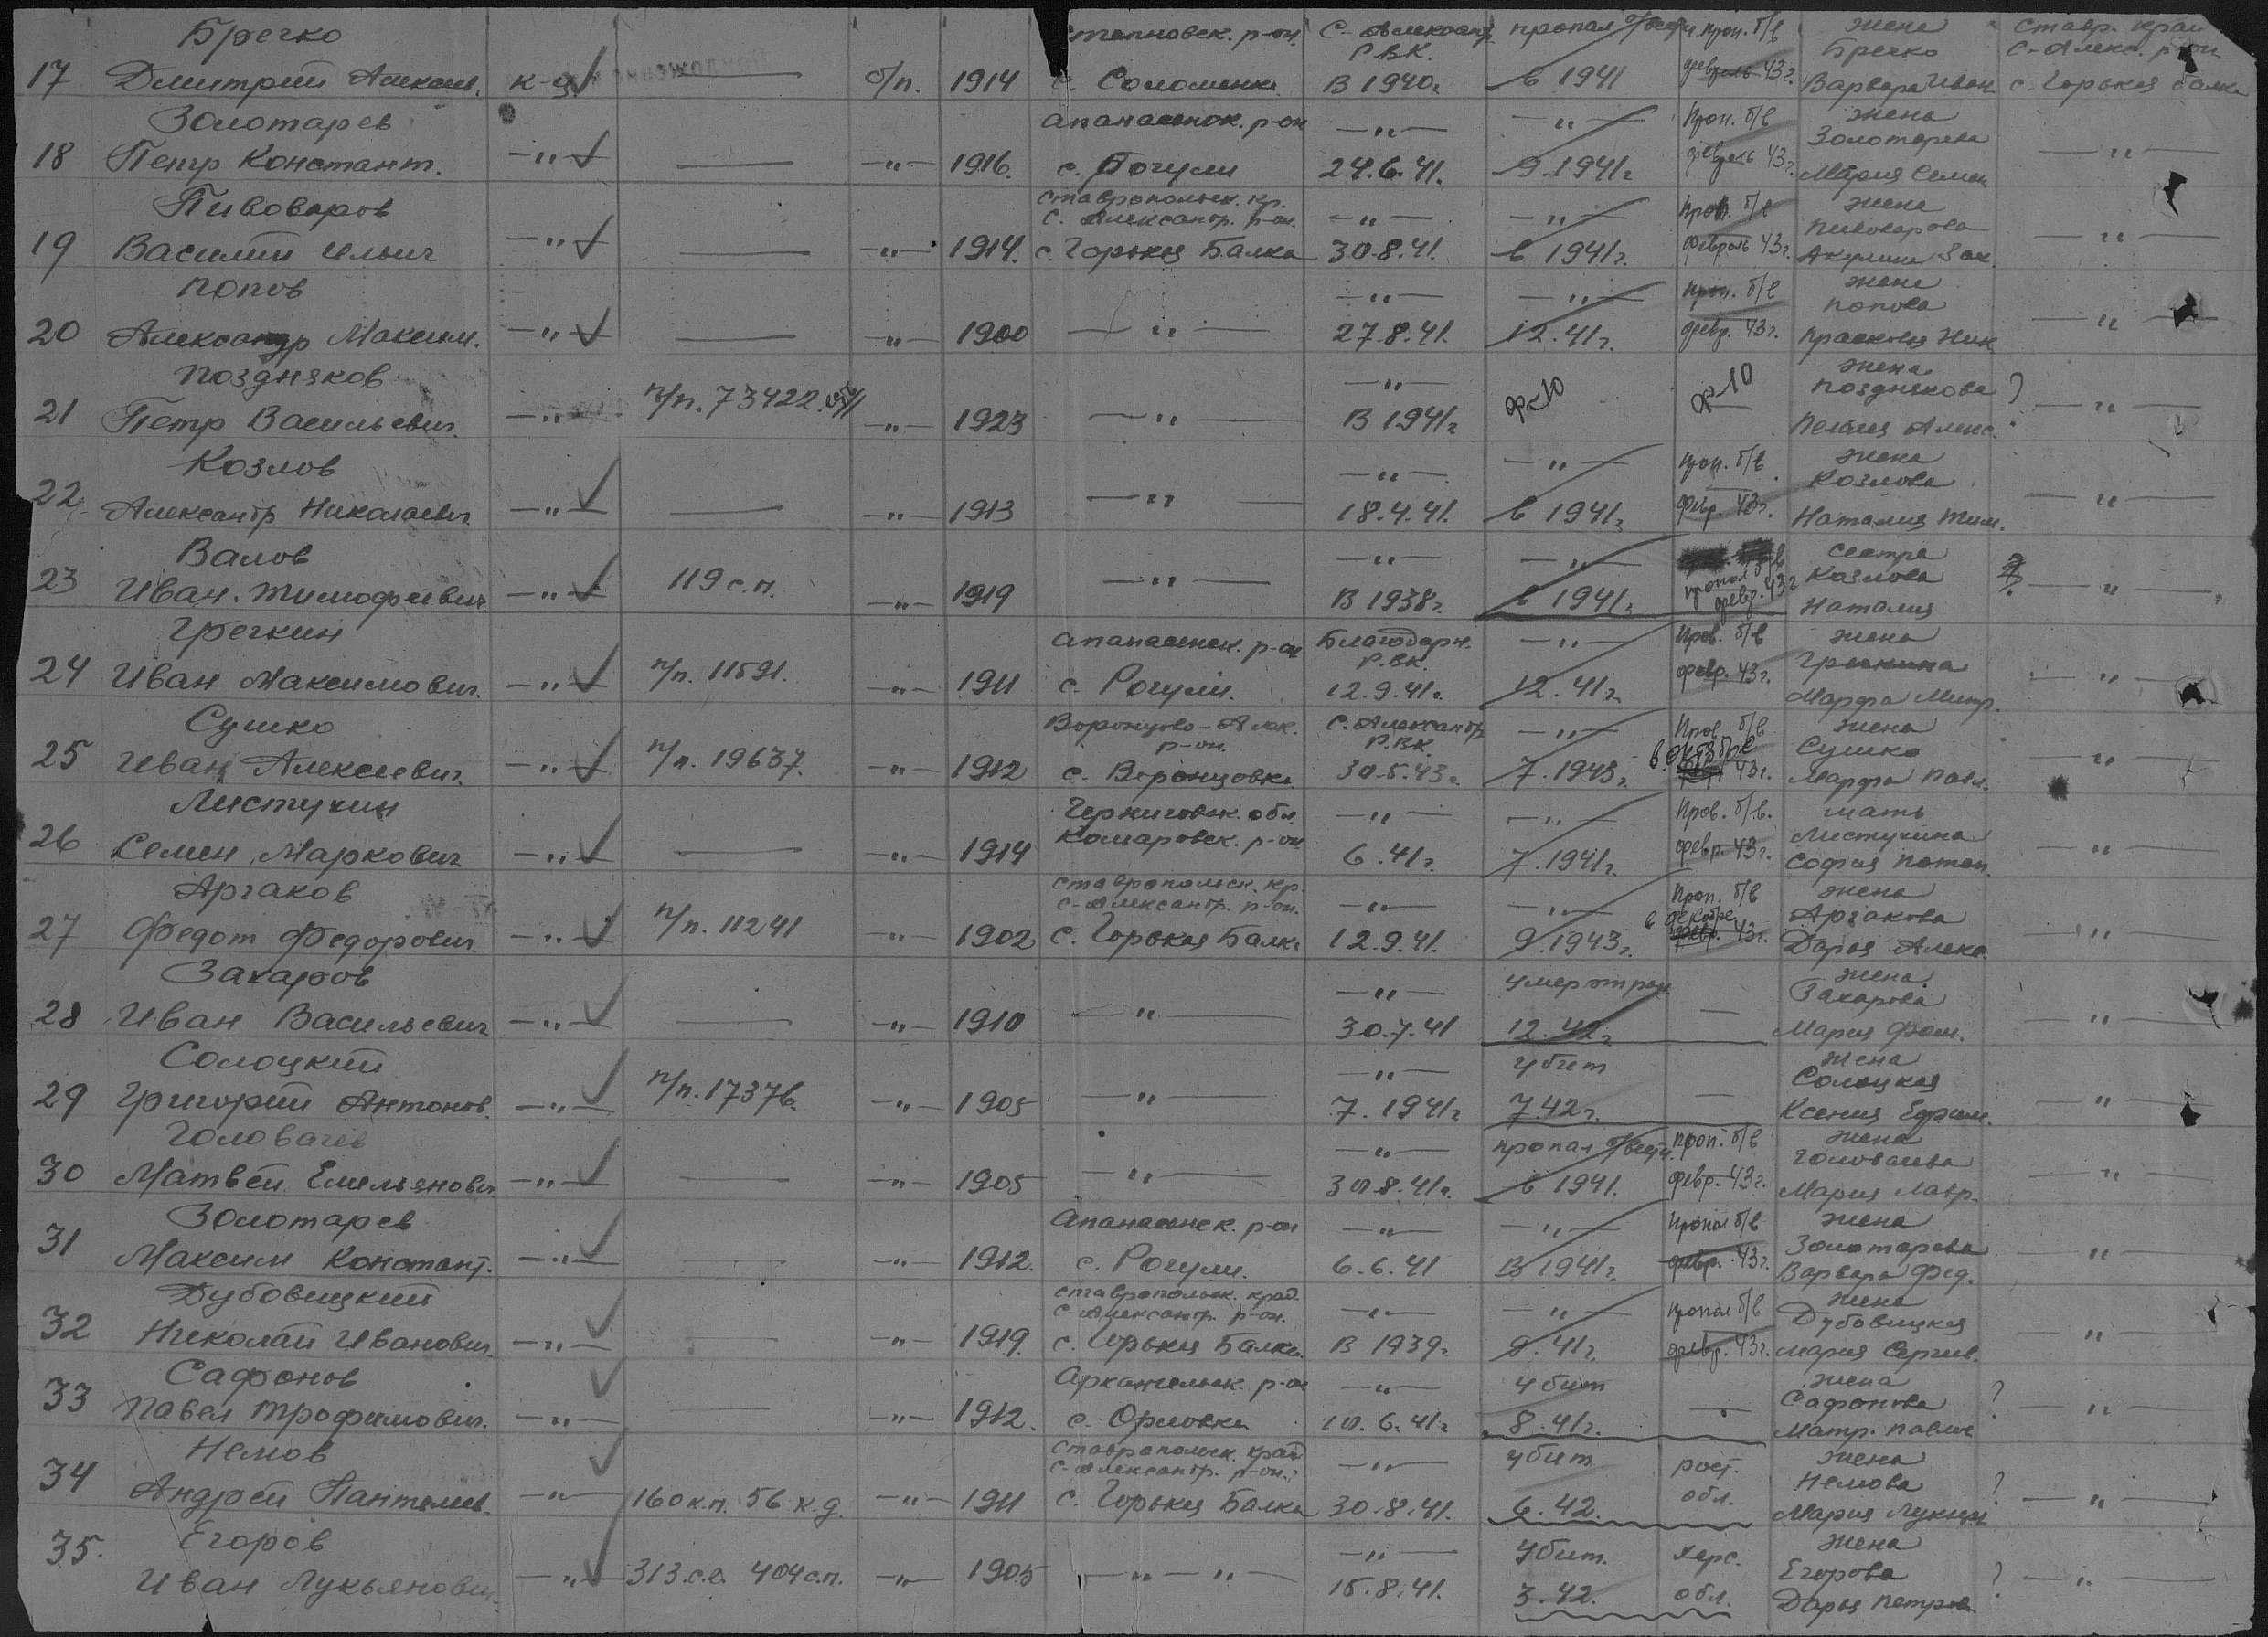 Бречко Степновск. р-он. С-Александр. пропал б/вести проп. б/в жена Ставр. край
17 Дмитрий Алексеев. к-ц б/п. 1914 с. Соломенка РВК. В 1940г в 1941 февраль 43г. Бречко Варвара Иван. С-Алекс. р-он с. Горькая балка
Золотарев Апанасенск. р-он —"— —"— Проп. б/в жена
18 Петр Констант. —"— —— —"— 1916. с. Рогули 24.6.41. 9.1941г февраль 43г. Золотарева Мария Семен. —"—
Пивоваров Ставропольск. кр. С. Александр. р-он. —"— —"— Проп. б/в жена
19 Василий Ильич —"— —— —"— 1914. с. Горькая Балка 30.8.41. в 1941г. февраль 43г. Пивоварова Акулина Зах. —"—
Попов —"— —"— проп. б/в жена
20 Александр Максим. —"— —— —"— 1900 —"— 27.8.41. 12.41г. февр. 43г. Попова Прасковья Ник. —"—
Поздняков —"— жена
21 Петр Васильевич. —"— п/п. 73422. —"— 1923 —"— В 1941г ф-10 ф-10 Позднякова Пелагия Алекс. ? —"—
Козлов —"— —"— проп. б/в жена
22 Александр Николаевич —"— —— —"— 1913 —"— 18.4.41. в 1941г. февр. 43г. Козлова Наталия Тим. —"—
Валов —"— —"— пропал б/в сестра
23 Иван Тимофеевич —"— 119 с.п. —"— 1919 —"— В 1938г. в 1941г. февр. 43г Козлова Наталия ? —"—
Гречкин Апанасенск. р-он Благодарн. —"— Проп. б/в жена
24 Иван Максимович. —"— п/п. 11591. —"— 1911 с. Рогули. Р.ВК. 12.9.41г. 12.41г. февр. 43г. Гречкина Марфа Митр. —"—
Сушко Воронцово-Алек. р-он. С. Александр. —"— Проп. б/в жена
25 Иван Алексеевич. —"— п/п. 19637. —"— 1912 с. Воронцовка Р.ВК 30.5.43г. 7.1943г. в октябре 43г. Сушко Марфа Павл. —"—
Листухин Черниговск. обл. —"— —"— Проп. б/в. мать
26 Семен Маркович —"— —— —"— 1914 Комаровск. р-он 6.41г. 7.1941г. февр. 43г. Листухина София Потап. —"—
Аргаков Ставропольск. кр. С-Александр. р-он. —"— —"— Проп. б/в жена
27 Федот Федорович. —"— п/п. 11241 —"— 1902 с. Горькая Балка 12.9.41. 9.1943г. в декабре февр. 43г. Аргакова Дарья Алекс. —"—
Захаров —"— умер от ран. жена
28 Иван Васильевич —"— —— —"— 1910 —"— 30.7.41 12.42г — Захарова Мария Фом. —"—
Солоцкий —"— убит жена
29 Григорий Антонов. —"— п/п. 17376. —"— 1905 —"— 7.1941г 7.42г. — Солоцкая Ксения Ефим. —"—
Головачев —"— пропал б/вести. проп. б/в жена
30 Матвей Емельянович —"— —— —"— 1905 —"— 30.8.41г. в 1941. февр. 43г. Головачева Мария Лавр. —"—
Золотарев Апанасенск. р-он —"— —"— пропал б/в жена
31 Максим Констант. —"— —— —"— 1912. с. Рогули. 6.6.41 В 1941г. февр. 43г. Золотарева Варвара Фед. —"—
Дубовицкий Ставропольск. край С-Александр. р-он. —"— —"— пропал б/в жена
32 Николай Иванович. —"— —— —"— 1919. с. Горькая Балка. В 1939г 9.41г. февр. 43г. Дубовицкая Мария Сергеев. —"—
Сафонов Архангельск. р-он —"— убит жена
33 Павел Трофимович. —"— —— —"— 1912. с. Орловка 10.6.41г 8.41г. — Сафонова Матр. Павлов. ? —"—
Немов Ставропольск. край С-Александр. р-он. —"— убит рост. жена
34 Андрей Пантелеев. —"— 160 к.п. 56 к.д. —"— 1911 с. Горькая Балка 30.8.41. 6.42. обл. Немова Мария Лукин. ? —"—
Егоров —"— убит. херс. жена
35. Иван Лукьянович. —"— 313.с.д. 404 с.п. —"— 1905 —"—"— 15.8.41. 3.42. обл. Егорова Дарья Петров. ? —"—